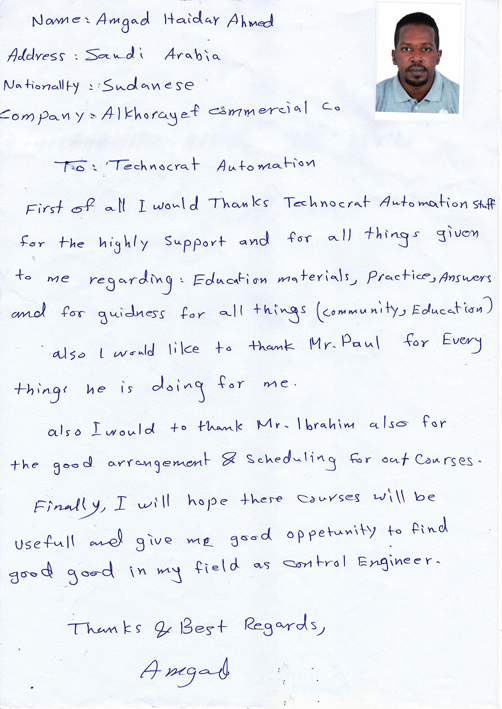 Name: Amgad Haidar Ahmed
Address: Saudi Arabia
Nationality: Sudanese
Company: Alkhorayef commercial Co
To: Technocrat Automation
First of all I would Thanks Technocrat Automation Staff
for the highly Support and for all things given
to me regarding: Education materials, Practice, Answers
and for guidness for all things (community, Education)
also I would like to thank Mr. Paul for Every
things he is doing for me.
also I would to thank Mr. Ibrahim also for
the good arrangement & Scheduling for out Courses.
Finally, I will hope these courses will be
usefull and give me good oppetunity to find
good good in my field as control Engineer.
Thanks & Best Regards,
Amgad